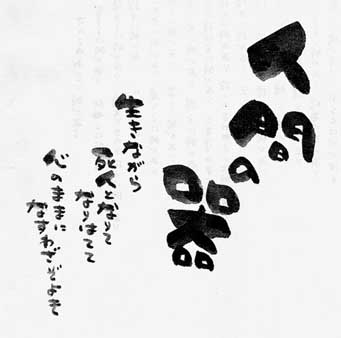 人間の器
生きながら
死人となりて
なりはてて
心のままに
なすわざぞよき